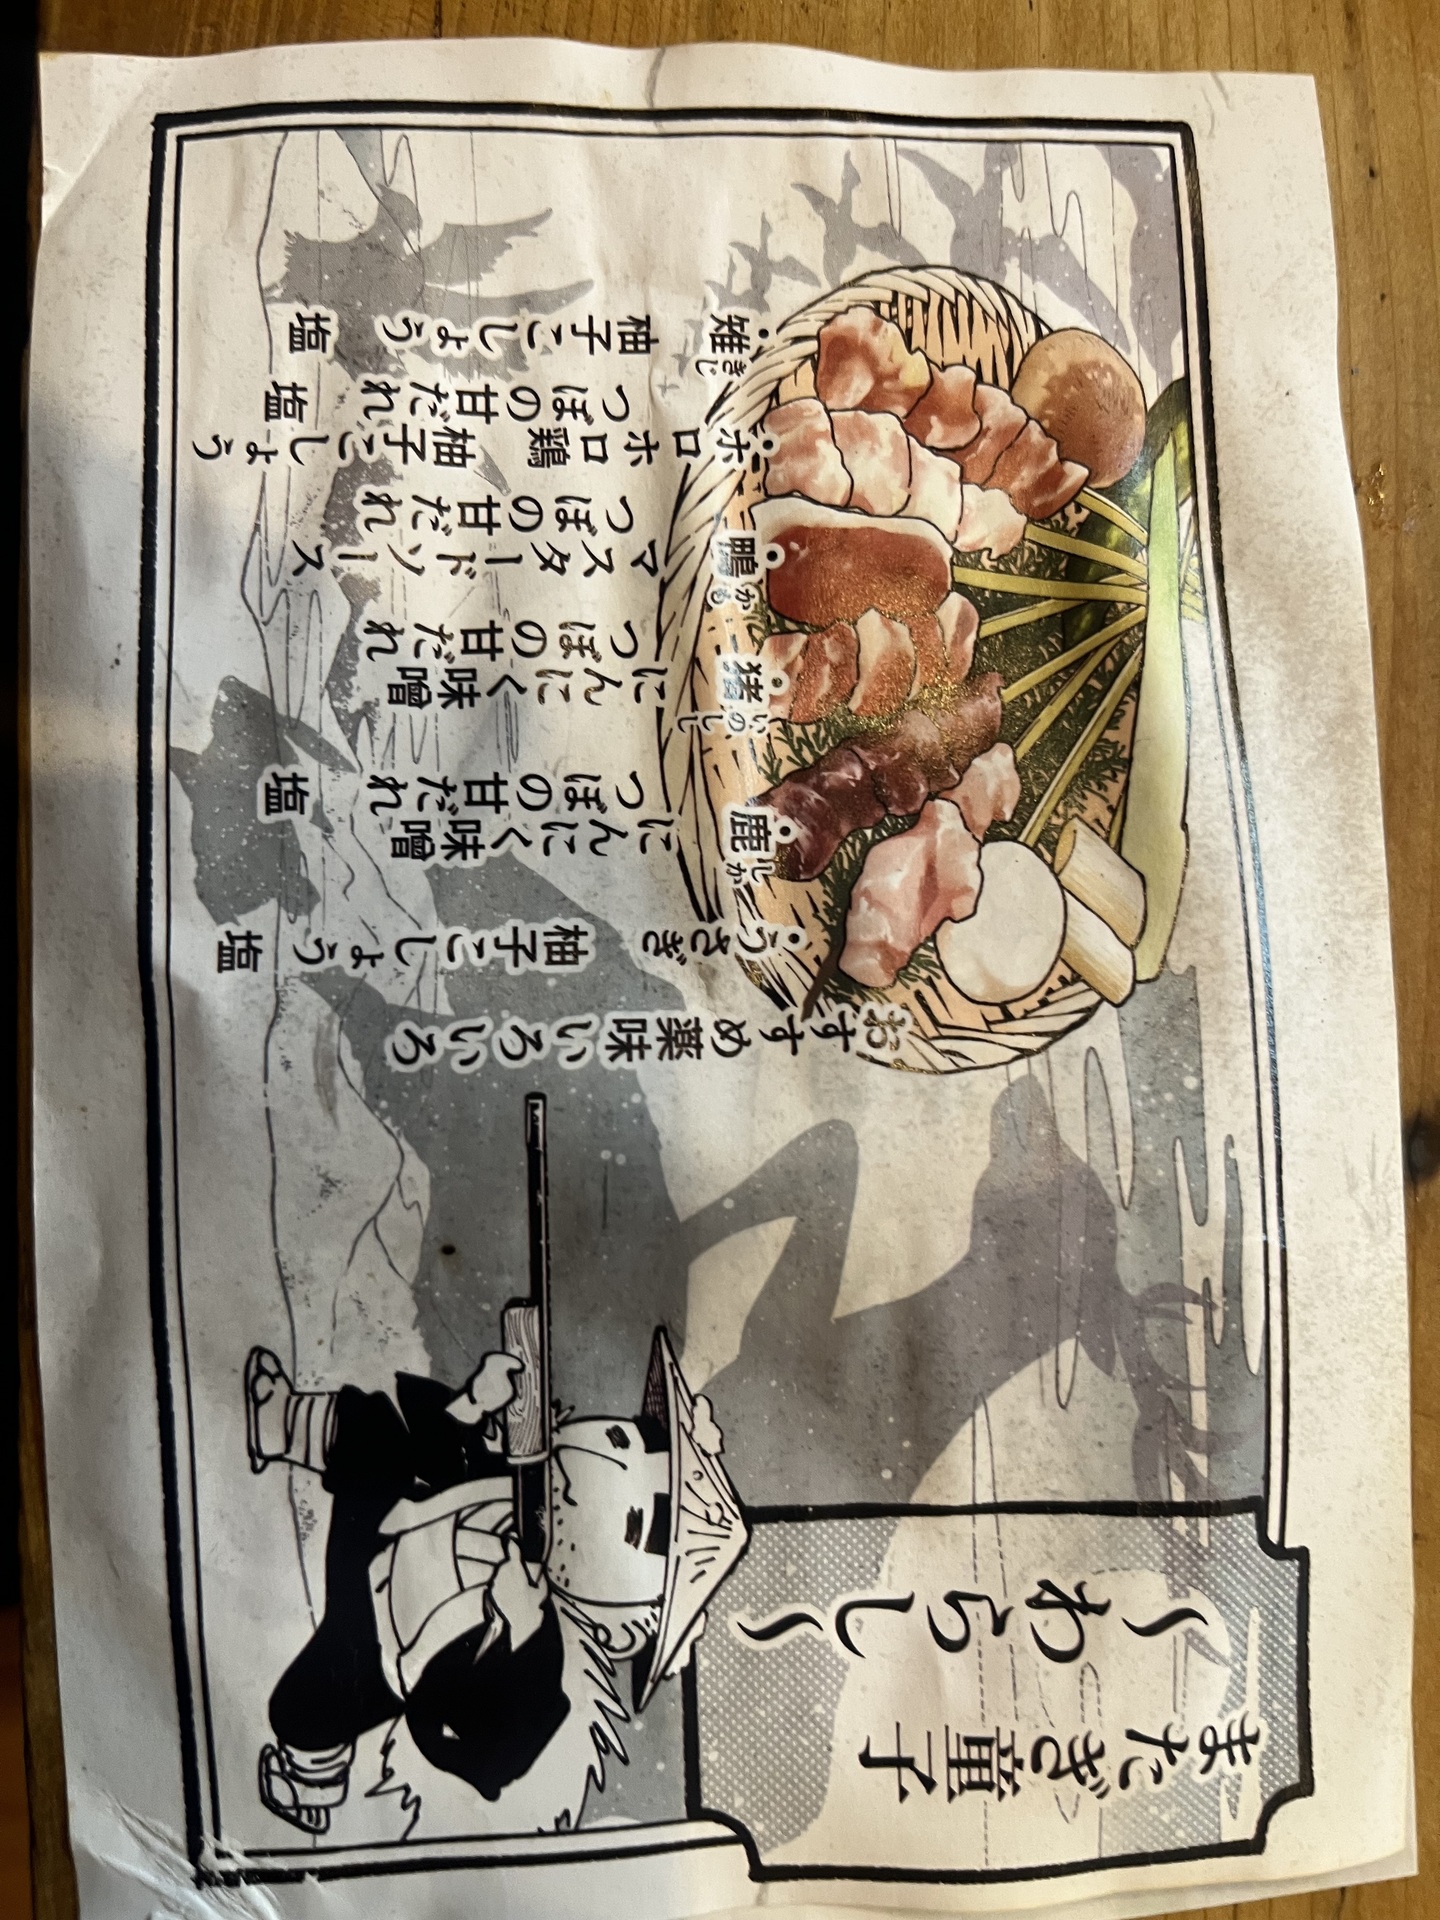 またぎ童子
〜わらし〜
おすすめ薬味いろいろ
・うさぎ 柚子こしょう 塩
しか
・鹿 にんにく味噌
つぼの甘だれ 塩
いのしし
・猪 にんにく味噌
つぼの甘だれ
かも
・鴨 マスタードソース
つぼの甘だれ
・ホロホロ鶏 柚子こしょう
つぼの甘だれ 塩
きじ
・雉 柚子こしょう 塩